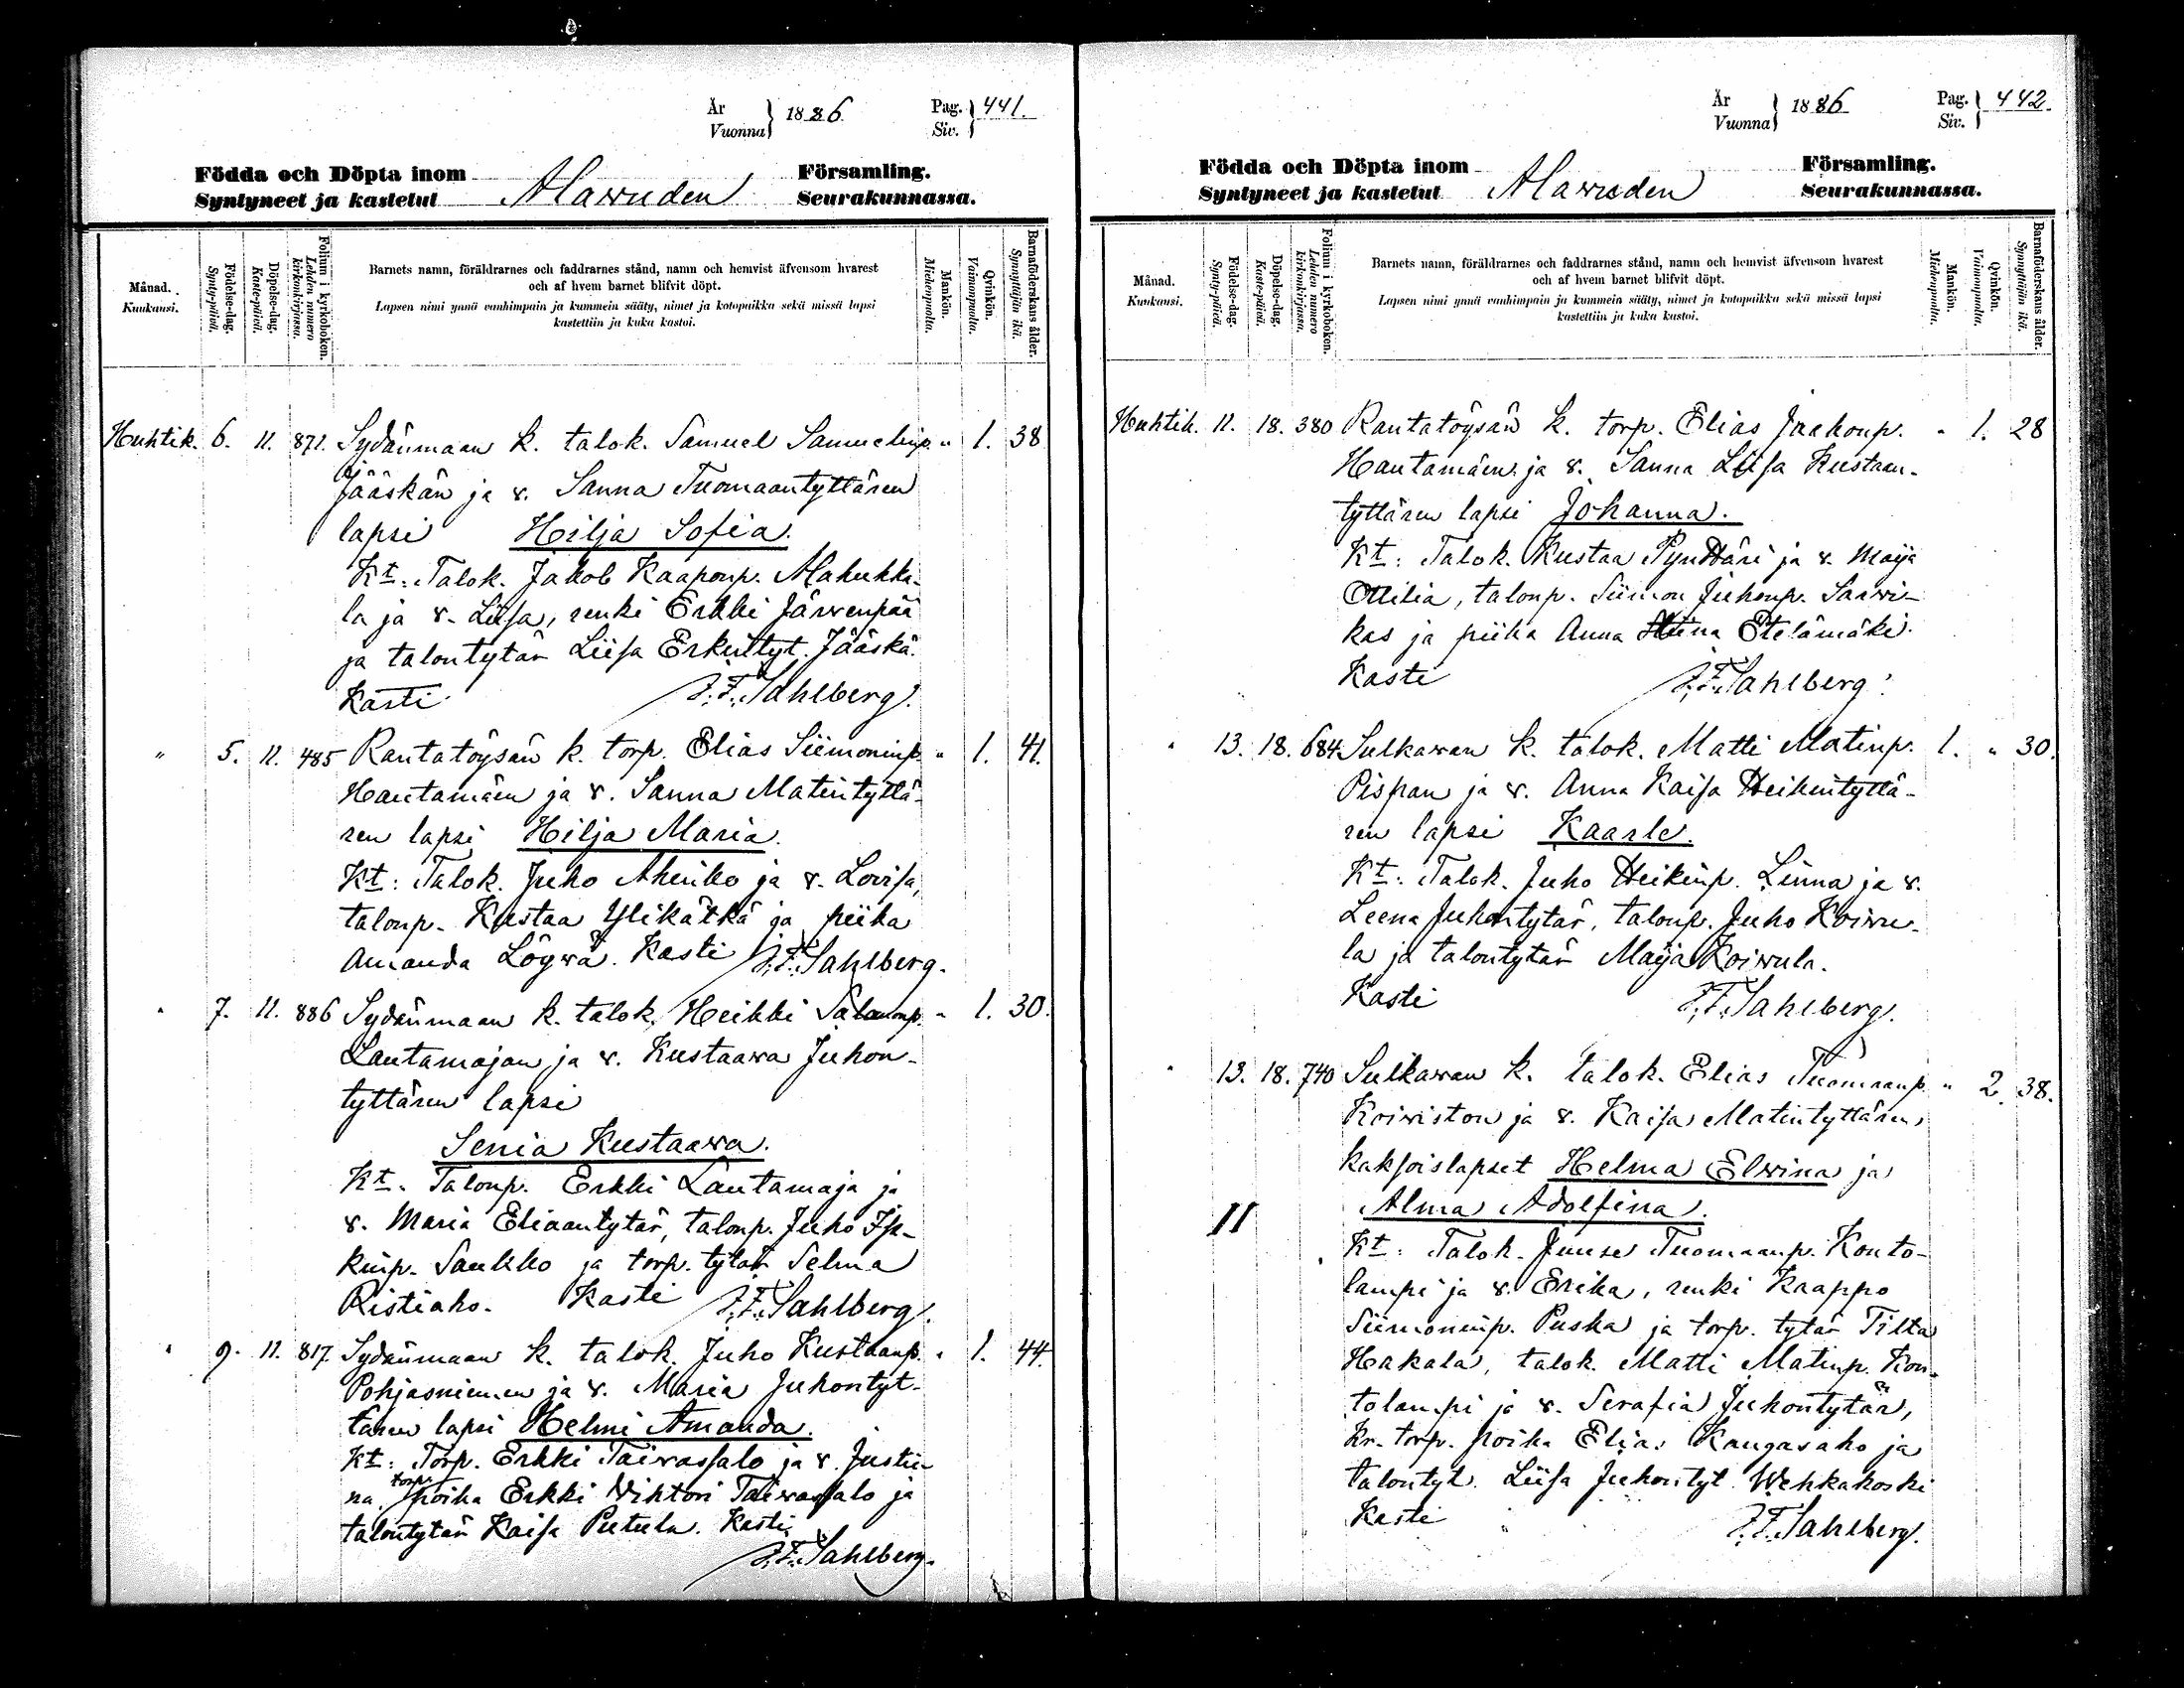 År
Vuonna } 1886
Pag.
Siv. } 441.
Födda och Döpta inom
Syntyneet ja kastetut
Alawuden
Församling.
Seurakunnassa.
Månad.
Kuukausi.
Födelse-dag.
Synty-päivä.
Döpelse-dag.
Kaste-päivä.
Folium i kyrkoboken.
Lehden numero
kirkonkirjassa.
Barnets namn, föräldrarnes och faddrarnes stånd, namn och hemvist äfvensom hvarest
och af hvem barnet blifvit döpt.
Lapsen nimi ynnä vanhimpain ja kummein sääty, nimet ja kotopaikka sekä missä lapsi
kastettiin ja kuka kastoi.
Mankön.
Miehenpuolta.
Qvinkön.
Vaimonpuolta.
Barnaföderskans ålder.
Synnyttäjän ikä.
Huhtik. 6. 11. 871. Sydänmaan k. talok. Samuel Samuelinp. " 1. 38
Jääskän ja v. Sanna Tuomaantyttären
lapsi Hilja Sofia.
Kt: Talok. Jakob Kaaponp. Alahukka-
la ja v. Liisa, renki Erkki Järwenpää
ja talontytär Liisa Erkintyt. Jääskä.
Kasti J. F. Sahlberg.
" 5. 11. 485 Rantatöysän k. torp. Elias Siimoninp. " 1. 41.
Hautamäen ja v. Sanna Matintyttä-
ren lapsi Hilja Maria.
Kt: Talok. Juho ja v. Lovisa,
talonp. Kustaa Ylikätkä ja piika
Amanda Löywä. Kasti J. F. Sahlberg.
" 7. 11. 886 Sydänmaan k. talok. Heikki Salomonp. " 1. 30.
Lautamajan ja v. Kustaawa Juhon-
tyttären lapsi
Senia Kustaawa.
Kt. Talonp. Erkki Lautamaja ja
v. Maria Eliaantytär, talonp. Juho Is-
kinp. Saukko ja torp. tytär Selma
Ristiaho. Kasti J. F. Sahlberg.
" 9. 11. 817. Sydänmaan k. talok. Juho Kustaanp. " 1. 44.
Pohjasniemen ja v. Maria Juhontyt-
tären lapsi Helmi Amanda.
Kt: Torp. Erkki Taiwassalo ja v. Justii-
na, torp. poika Erkki Wihtori Taiwassalo ja
talontytär Kaisa Putula. Kasti
J. F. Sahlberg.
År
Vuonna } 1886
Pag.
Siv. } 442.
Födda och Döpta inom
Syntyneet ja kastetut
Alawuden
Församling.
Seurakunnassa.
Månad.
Kuukausi.
Födelse-dag.
Synty-päivä.
Döpelse-dag.
Kaste-päivä.
Folium i kyrkoboken.
Lehden numero
kirkonkirjassa.
Barnets namn, föräldrarnes och faddrarnes stånd, namn och hemvist äfvensom hvarest
och af hvem barnet blifvit döpt.
Lapsen nimi ynnä vanhimpain ja kummein sääty, nimet ja kotopaikka sekä missä lapsi
kastettiin ja kuka kastoi.
Mankön.
Miehenpuolta.
Qvinkön.
Vaimonpuolta.
Barnaföderskans ålder.
Synnyttäjän ikä.
Huhtik. 11. 18. 380 Rantatöysän k. torp. Elias Jaakonp. " 1. 28
Hautamäen ja v. Sanna Liisa Kustaan-
tyttären lapsi Johanna.
Kt: Talok. Kustaa Pynttäri ja v. Maija
Ottilia, talonp. Siimon Juhonp. Sarwi-
kas ja piika Anna Etelämäki.
Kaste J. F. Sahlberg.
" 13. 18. 684 Sulkawan k. talok. Matti Matinp. 1. " 30.
Pispan ja v. Anna Kaisa Heikintyttä-
ren lapsi Kaarle.
Kt: Talok. Juho Heikinp. Linna ja v.
Leena Juhontytär, talonp. Juho Koiwu-
la ja talontytär Maija Koiwula.
Kasti J. F. Sahlberg.
" 13. 18. 740 Sulkawan k. talok. Elias Tuomaanp. " 2. 38.
Koiwiston ja v. Kaisa Matintyttären
kaksoislapset Helma Elwina ja
II Alma Adolfina.
Kt: Talok. Juuse Tuomaanp. Konto-
lampi ja v. Erika, renki Kaappo
Siimoninp. Puska ja torp. tytär Tilta
Hakala, talok. Matti Matinp. Kon-
tolampi ja v. Serafia Juhontytär,
kr. torp. poika Elias Kangasaho ja
talontyt. Liisa Juhontyt. Wehkakoski
Kaste J. F. Sahlberg.